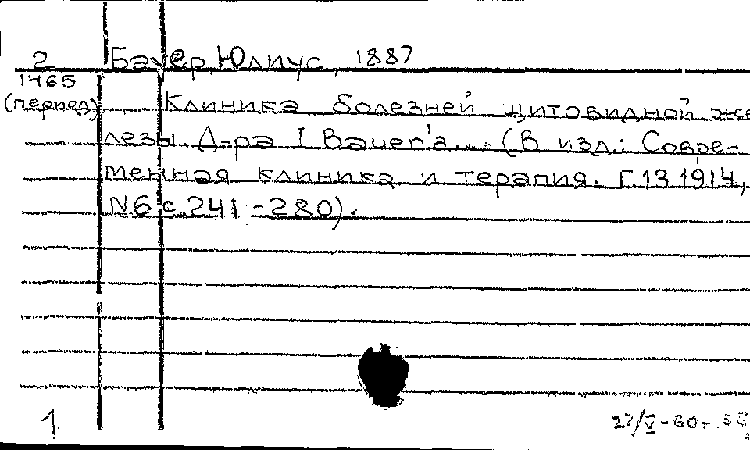 2 Бауер, Юлиус, 1887
1765
(период) Клиника болезней щитовидной же
лезы Д-ра I Bauer'a... (В изд.: Совре-
менная клиника и терапия. Г.13 1914,
N6 с. 241-280).
1
27/V-60г.